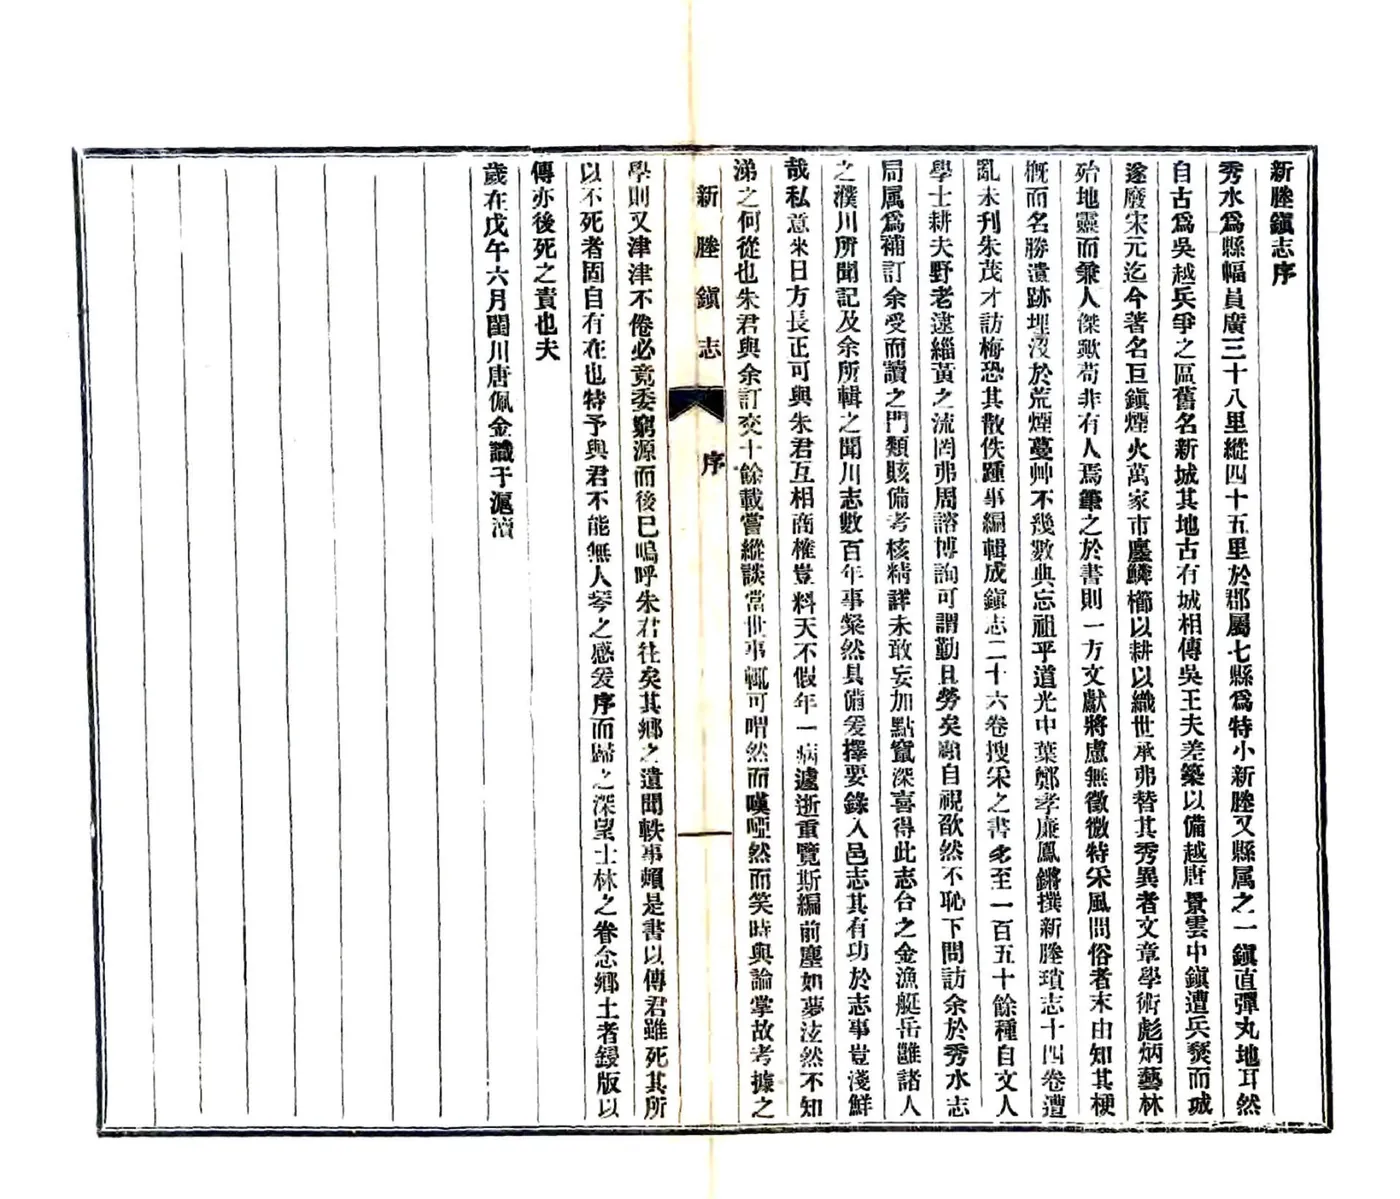 新塍鎭志序
秀水爲縣幅員廣三十八里縱四十五里於郡屬七縣爲特小新塍又縣属之一鎭直彈丸地耳然
自古爲吳越兵爭之區舊名新城其地古有城相傳吳王夫差築以備越唐景雲中鎭遭兵燹而城
遂廢宋元迄今著名巨鎭煙火萬家市廛鱗櫛以耕以織世承弗替其秀異者文章學術彪炳藝林
殆地靈而兼人傑歟苟非有人焉筆之於書則一方文獻將慮無徵微特采風問俗者末由知其梗
槪而名勝遺跡埋沒於荒煙蔓艸不幾數典忘祖乎道光中葉鄭孝廉鳳鏘撰新塍瑣志十四卷遭
亂未刊朱茂才訪梅恐其散佚踵事編輯成鎭志二十六卷搜采之書多至一百五十餘種自文人
學士耕夫野老逮緇黃之流罔弗周諮博詢可謂勤且勞矣顧自視欿然不恥下問訪余於秀水志
局属爲補訂余受而讀之門類賅備考核精詳未敢妄加點竄深喜得此志合之金漁艇岳雝諸人
之濮川所聞記及余所輯之聞川志數百年事粲然具備爰擇要錄入邑志其有功於志事豈淺鮮
哉私意來日方長正可與朱君互相商榷豈料天不假年一病遽逝重覽斯編前塵如夢泫然不知
涕之何從也朱君與余訂交十餘載嘗縱談當世事輒可喟然而嘆啞然而笑時與論掌故考據之
新塍鎭志 序 一
學則又津津不倦必竟委窮源而後已嗚呼朱君往矣其鄕之遺聞軼事賴是書以傳君雖死其所
以不死者固自有在也特予與君不能無人琴之感爰序而歸之深望士林之眷念鄕土者鋟版以
傳亦後死之責也夫
歲在戊午六月聞川唐佩金識于滬瀆